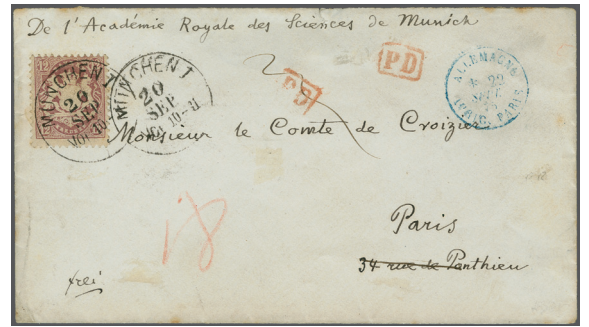 De l'Académie Royale des Sciences de Munich
MÜNCHEN I
20
SEP
MÜNCHEN I
20
SEP
VOR. 10-11
PD
PD
ALLEMAGNE
22
PARIS
Monsieur le Comte de Croizier
Paris
34 rue de Penthieu
frei
18